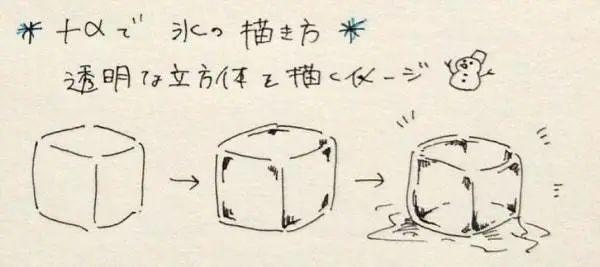 * +αで 氷の描き方 *
透明な立方体を描くイメージ